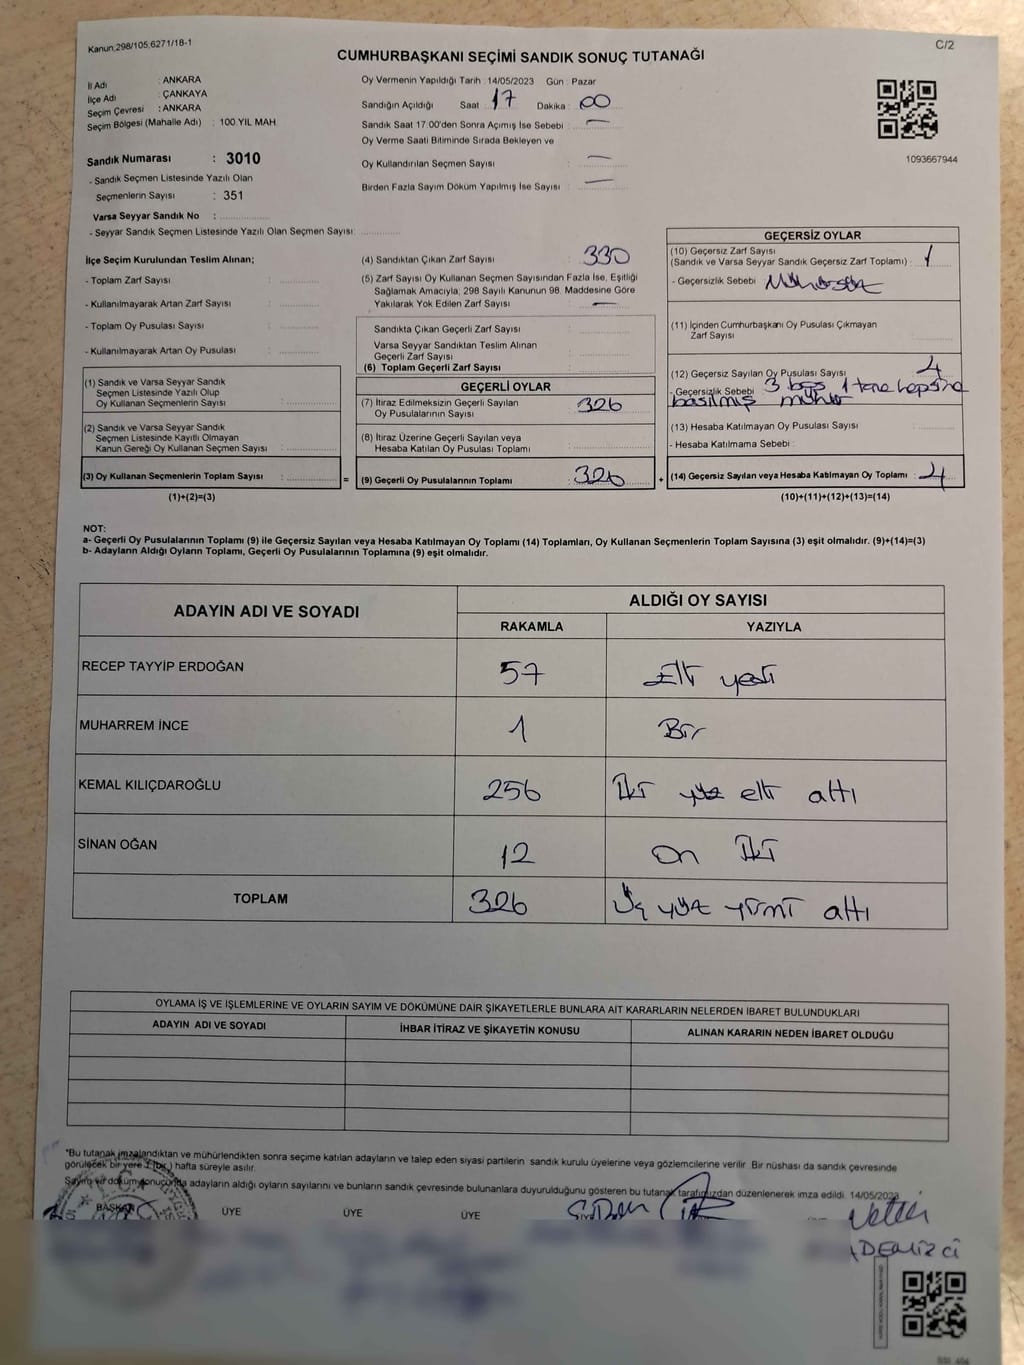 Kanun:298/105;6271/18-1
C/2
CUMHURBAŞKANI SEÇİMİ SANDIK SONUÇ TUTANAĞI
İl Adı : ANKARA
İlçe Adı : ÇANKAYA
Seçim Çevresi : ANKARA
Seçim Bölgesi (Mahalle Adı) : 100.YIL MAH.
Sandık Numarası : 3010
- Sandık Seçmen Listesinde Yazılı Olan
Seçmenlerin Sayısı : 351
Varsa Seyyar Sandık No :
- Seyyar Sandık Seçmen Listesinde Yazılı Olan Seçmen Sayısı:
Oy Vermenin Yapıldığı Tarih : 14/05/2023 Gün : Pazar
Sandığın Açıldığı Saat : 17 Dakika : 00
Sandık Saat 17:00'den Sonra Açımış İse Sebebi : —
Oy Verme Saati Bitiminde Sırada Bekleyen ve
Oy Kullandırılan Seçmen Sayısı : —
Birden Fazla Sayım Döküm Yapılmış İse Sayısı : —
1093667944
İlçe Seçim Kurulundan Teslim Alınan;
- Toplam Zarf Sayısı :
- Kullanılmayarak Artan Zarf Sayısı :
- Toplam Oy Pusulası Sayısı :
- Kullanılmayarak Artan Oy Pusulası :
(1) Sandık ve Varsa Seyyar Sandık
Seçmen Listesinde Yazılı Olup
Oy Kullanan Seçmenlerin Sayısı :
(2) Sandık ve Varsa Seyyar Sandık
Seçmen Listesinde Kayıtlı Olmayan
Kanun Gereği Oy Kullanan Seçmen Sayısı :
(3) Oy Kullanan Seçmenlerin Toplam Sayısı : =
(1)+(2)=(3)
(4) Sandıktan Çıkan Zarf Sayısı : 330
(5) Zarf Sayısı Oy Kullanan Seçmen Sayısından Fazla İse, Eşitliği
Sağlamak Amacıyla, 298 Sayılı Kanunun 98. Maddesine Göre
Yakılarak Yok Edilen Zarf Sayısı : —
Sandıkta Çıkan Geçerli Zarf Sayısı :
Varsa Seyyar Sandıktan Teslim Alınan
Geçerli Zarf Sayısı :
(6) Toplam Geçerli Zarf Sayısı :
GEÇERLİ OYLAR
(7) İtiraz Edilmeksizin Geçerli Sayılan
Oy Pusulalarının Sayısı : 326
(8) İtiraz Üzerine Geçerli Sayılan veya
Hesaba Katılan Oy Pusulası Toplamı :
(9) Geçerli Oy Pusulalarının Toplamı : 326 +
GEÇERSİZ OYLAR
(10) Geçersiz Zarf Sayısı
(Sandık ve Varsa Seyyar Sandık Geçersiz Zarf Toplamı) : 1
- Geçersizlik Sebebi :
(11) İçinden Cumhurbaşkanı Oy Pusulası Çıkmayan
Zarf Sayısı :
(12) Geçersiz Sayılan Oy Pusulası Sayısı : 4
- Geçersizlik Sebebi : 3 boş 1 tane hepsine
basılmış mühür
(13) Hesaba Katılmayan Oy Pusulası Sayısı :
- Hesaba Katılmama Sebebi :
(14) Geçersiz Sayılan veya Hesaba Katılmayan Oy Toplamı : 4
(10)+(11)+(12)+(13)=(14)
NOT:
a- Geçerli Oy Pusulalarının Toplamı (9) ile Geçersiz Sayılan veya Hesaba Katılmayan Oy Toplamı (14) Toplamları, Oy Kullanan Seçmenlerin Toplam Sayısına (3) eşit olmalıdır. (9)+(14)=(3)
b- Adayların Aldığı Oyların Toplamı, Geçerli Oy Pusulalarının Toplamına (9) eşit olmalıdır.
ADAYIN ADI VE SOYADI ALDIĞI OY SAYISI
RAKAMLA YAZIYLA
RECEP TAYYİP ERDOĞAN 57 Elli yedi
MUHARREM İNCE 1 Bir
KEMAL KILIÇDAROĞLU 256 İki yüz elli altı
SİNAN OĞAN 12 On İki
TOPLAM 326 Üç yüz yirmi altı
OYLAMA İŞ VE İŞLEMLERİNE VE OYLARIN SAYIM VE DÖKÜMÜNE DAİR ŞİKAYETLERLE BUNLARA AİT KARARLARIN NELERDEN İBARET BULUNDUKLARI
ADAYIN ADI VE SOYADI İHBAR İTİRAZ VE ŞİKAYETİN KONUSU ALINAN KARARIN NEDEN İBARET OLDUĞU
*Bu tutanak imzalandıktan ve mühürlendikten sonra seçime katılan adayların ve talep eden siyasi partilerin sandık kurulu üyelerine veya gözlemcilerine verilir. Bir nüshası da sandık çevresinde
görülecek bir yere 1 (bir) hafta süreyle asılır.
Sayım ve döküm sonucunda adayların aldığı oyların sayılarını ve bunların sandık çevresinde bulunanlara duyurulduğunu gösteren bu tutanak tarafımızdan düzenlenerek imza edildi. 14/05/2023
BAŞKAN ÜYE ÜYE ÜYE
DEMİRCİ